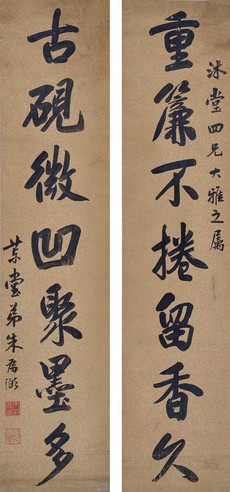 重簾不捲留香久
沐堂四兄大雅之屬
古硯微凹聚墨多
葉堂弟朱為弼